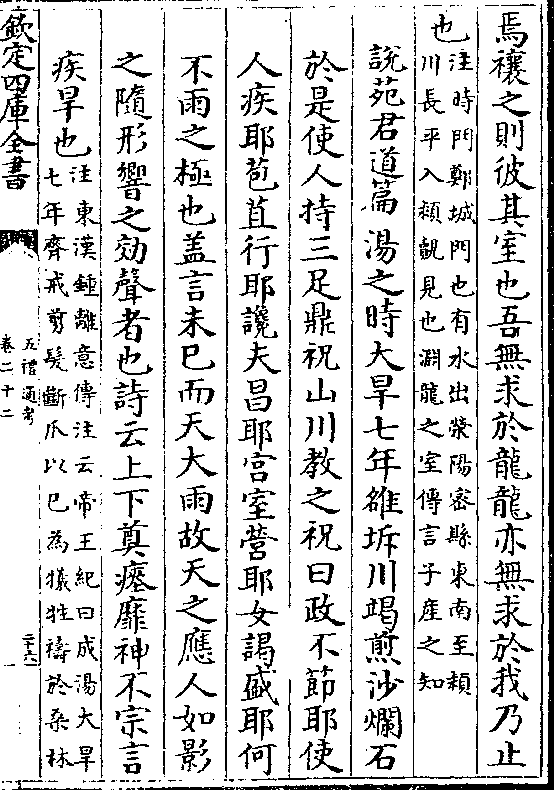 焉禳之則彼其室也吾無求於龍龍亦無求於我乃止
也注時門鄭城門也有水出滎陽密縣東南至潁
川長平入潁覿見也淵龍之室傳言子産之知
說苑君道篇湯之時大旱七年雒坼川竭煎沙爛石
於是使人持三足鼎祝山川教之祝曰政不節耶使
人疾耶苞苴行耶讒夫昌耶宫室營耶女謁盛耶何
不雨之極也盖言未已而天大雨故天之應人如影
之隨形響之効聲者也詩云上下奠瘞靡神不宗言
疾旱也注東漢鍾離意傳注云帝王紀曰成湯大旱
七年齊戒剪髮斷爪以已為犧牲禱於桑林
欽定四庫全書
五禮通考
卷二十二
二十六